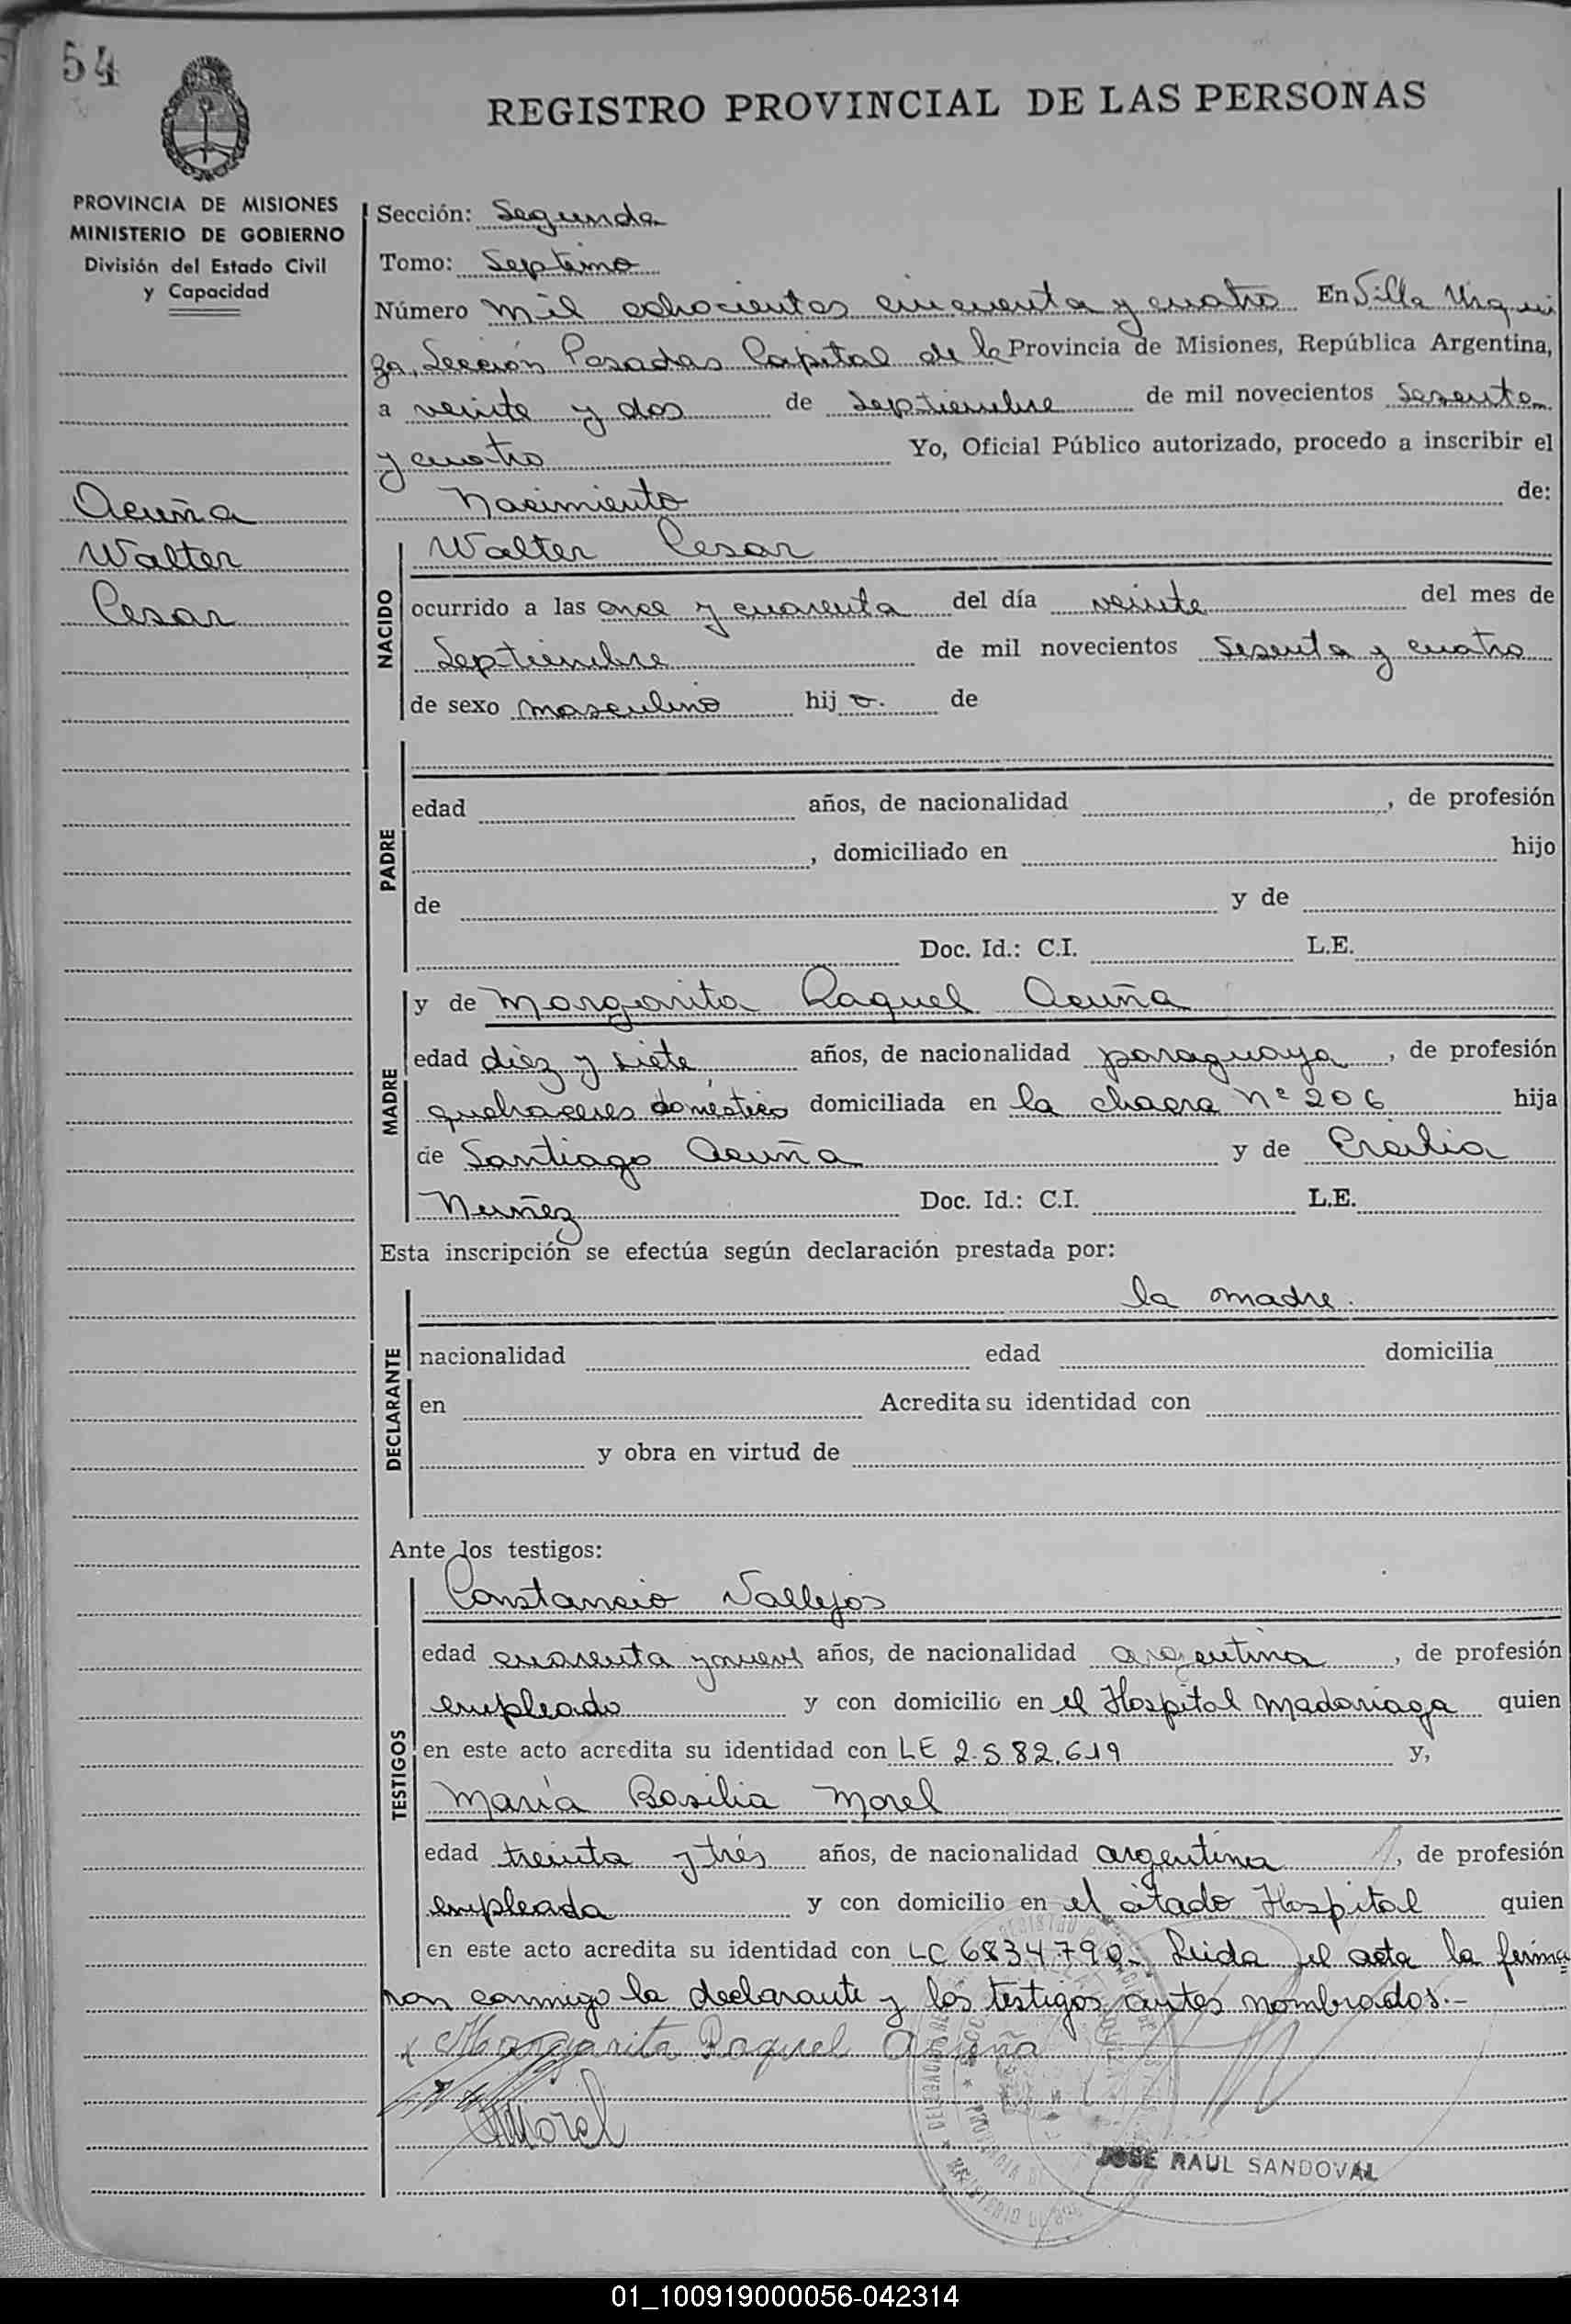 54
REGISTRO PROVINCIAL DE LAS PERSONAS
PROVINCIA DE MISIONES
MINISTERIO DE GOBIERNO
División del Estado Civil
y Capacidad
Acuña
Walter
Cesar
Sección: Segunda
Tomo: Septimo
Número mil ochocientos cincuenta y cuatro En Villa Urqui
za, Sección Posadas Capital de la Provincia de Misiones, República Argentina,
a veinte y dos de Septiembre de mil novecientos Sesenta
y cuatro Yo, Oficial Público autorizado, procedo a inscribir el
Nacimiento de:
NACIDO
Walter Cesar
ocurrido a las once y cuarenta del día veinte del mes de
Septiembre de mil novecientos Sesenta y cuatro
de sexo masculino hijo. de
PADRE
edad años, de nacionalidad , de profesión
, domiciliado en hijo
de y de
Doc. Id.: C.I. L.E.
MADRE
y de Margarita Raquel Acuña
edad diéz y siete años, de nacionalidad paraguaya, de profesión
quehaceres domésticos domiciliada en la chacra nº 206 hija
de Santiago Acuña y de
Nuñez Doc. Id.: C.I. L.E.
Esta inscripción se efectúa según declaración prestada por:
DECLARANTE
la madre.
nacionalidad edad domicilia
en Acredita su identidad con
y obra en virtud de
Ante los testigos:
TESTIGOS
Constancio Vallejos
edad cuarenta y nueve años, de nacionalidad argentina, de profesión
empleado y con domicilio en el Hospital Madariaga quien
en este acto acredita su identidad con LE 2.582.619 y,
María Basilia Morel
edad treinta y trés años, de nacionalidad argentina, de profesión
empleada y con domicilio en el citado Hospital quien
en este acto acredita su identidad con LC 6834790. Leida el acta la firma
ron conmigo la declarante y los testigos antes nombrados.-
x Margarita Raquel Acuña
Morel
JOSE RAUL SANDOVAL
01_100919000056-042314